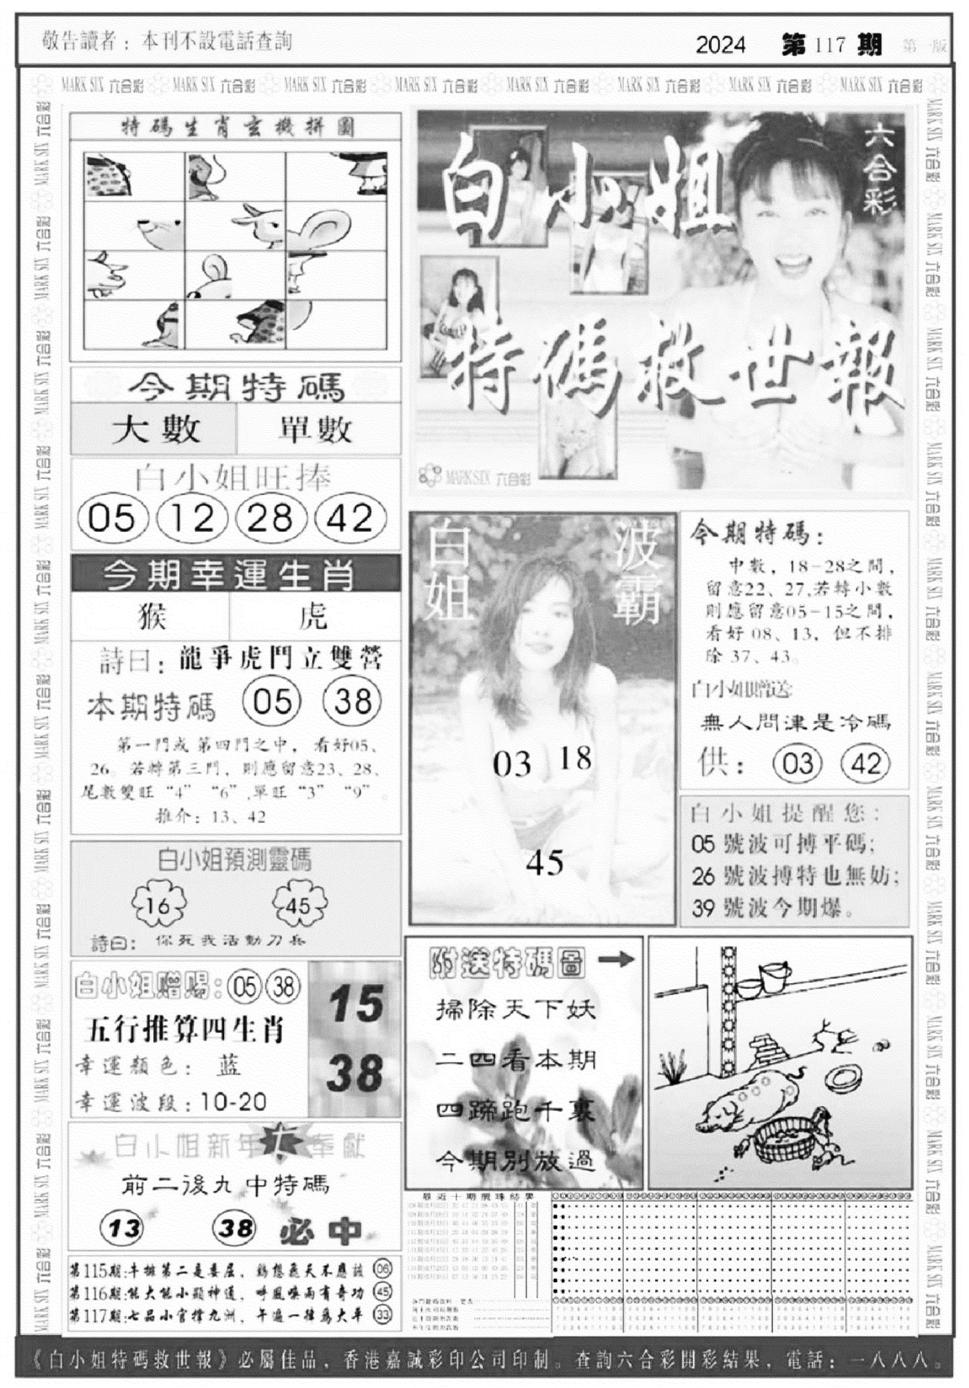 敬告讀者：本刊不設電話查詢
2024 第117期 第一版
MARK SIX 六合彩 MARK SIX 六合彩 MARK SIX 六合彩 MARK SIX 六合彩 MARK SIX 六合彩 MARK SIX 六合彩 MARK SIX 六合彩 MARK SIX 六合彩
特碼生肖玄機拼圖
今期特碼
大數 單數
白小姐旺捧
05 12 28 42
今期幸運生肖
猴 虎
詩曰：龍爭虎鬥立雙營
本期特碼 05 38
第一門或第四門之中，看好05、
26。若轉第三門，則應留意23、28、
尾數雙旺“4” “6”,單旺“3” “9”。
推介：13、42
白小姐預測靈碼
16 45
詩曰：你死我活動刀兵
白小姐贈賜：05 38
五行推算四生肖
幸運顏色：蓝
幸運波段：10-20
15
38
白小姐新年大奉獻
前二後九中特碼
13 38 必中
第115期:
第116期:
第117期:七品小官撑九洲，
06
45
33
白小姐
六合彩
特碼救世報
MARK SIX 六合彩
白姐
波霸
03 18
45
今期特碼：
中數，18-28之間，
留意22、27,若轉小數
則應留意05-15之間，
看好08、13，但不排
除37、43。
白小姐贈送
無人問津是冷碼
供：03 42
白小姐提醒您：
05 號波可搏平碼；
26 號波搏特也無妨；
39 號波今期爆。
附送特碼圖
掃除天下妖
二四看本期
四蹄跑千裏
今期別放過
最近十期攪珠結果
《白小姐特碼救世報》必屬佳品，香港嘉誠彩印公司印制。查詢六合彩開彩結果，電話：一八八八。